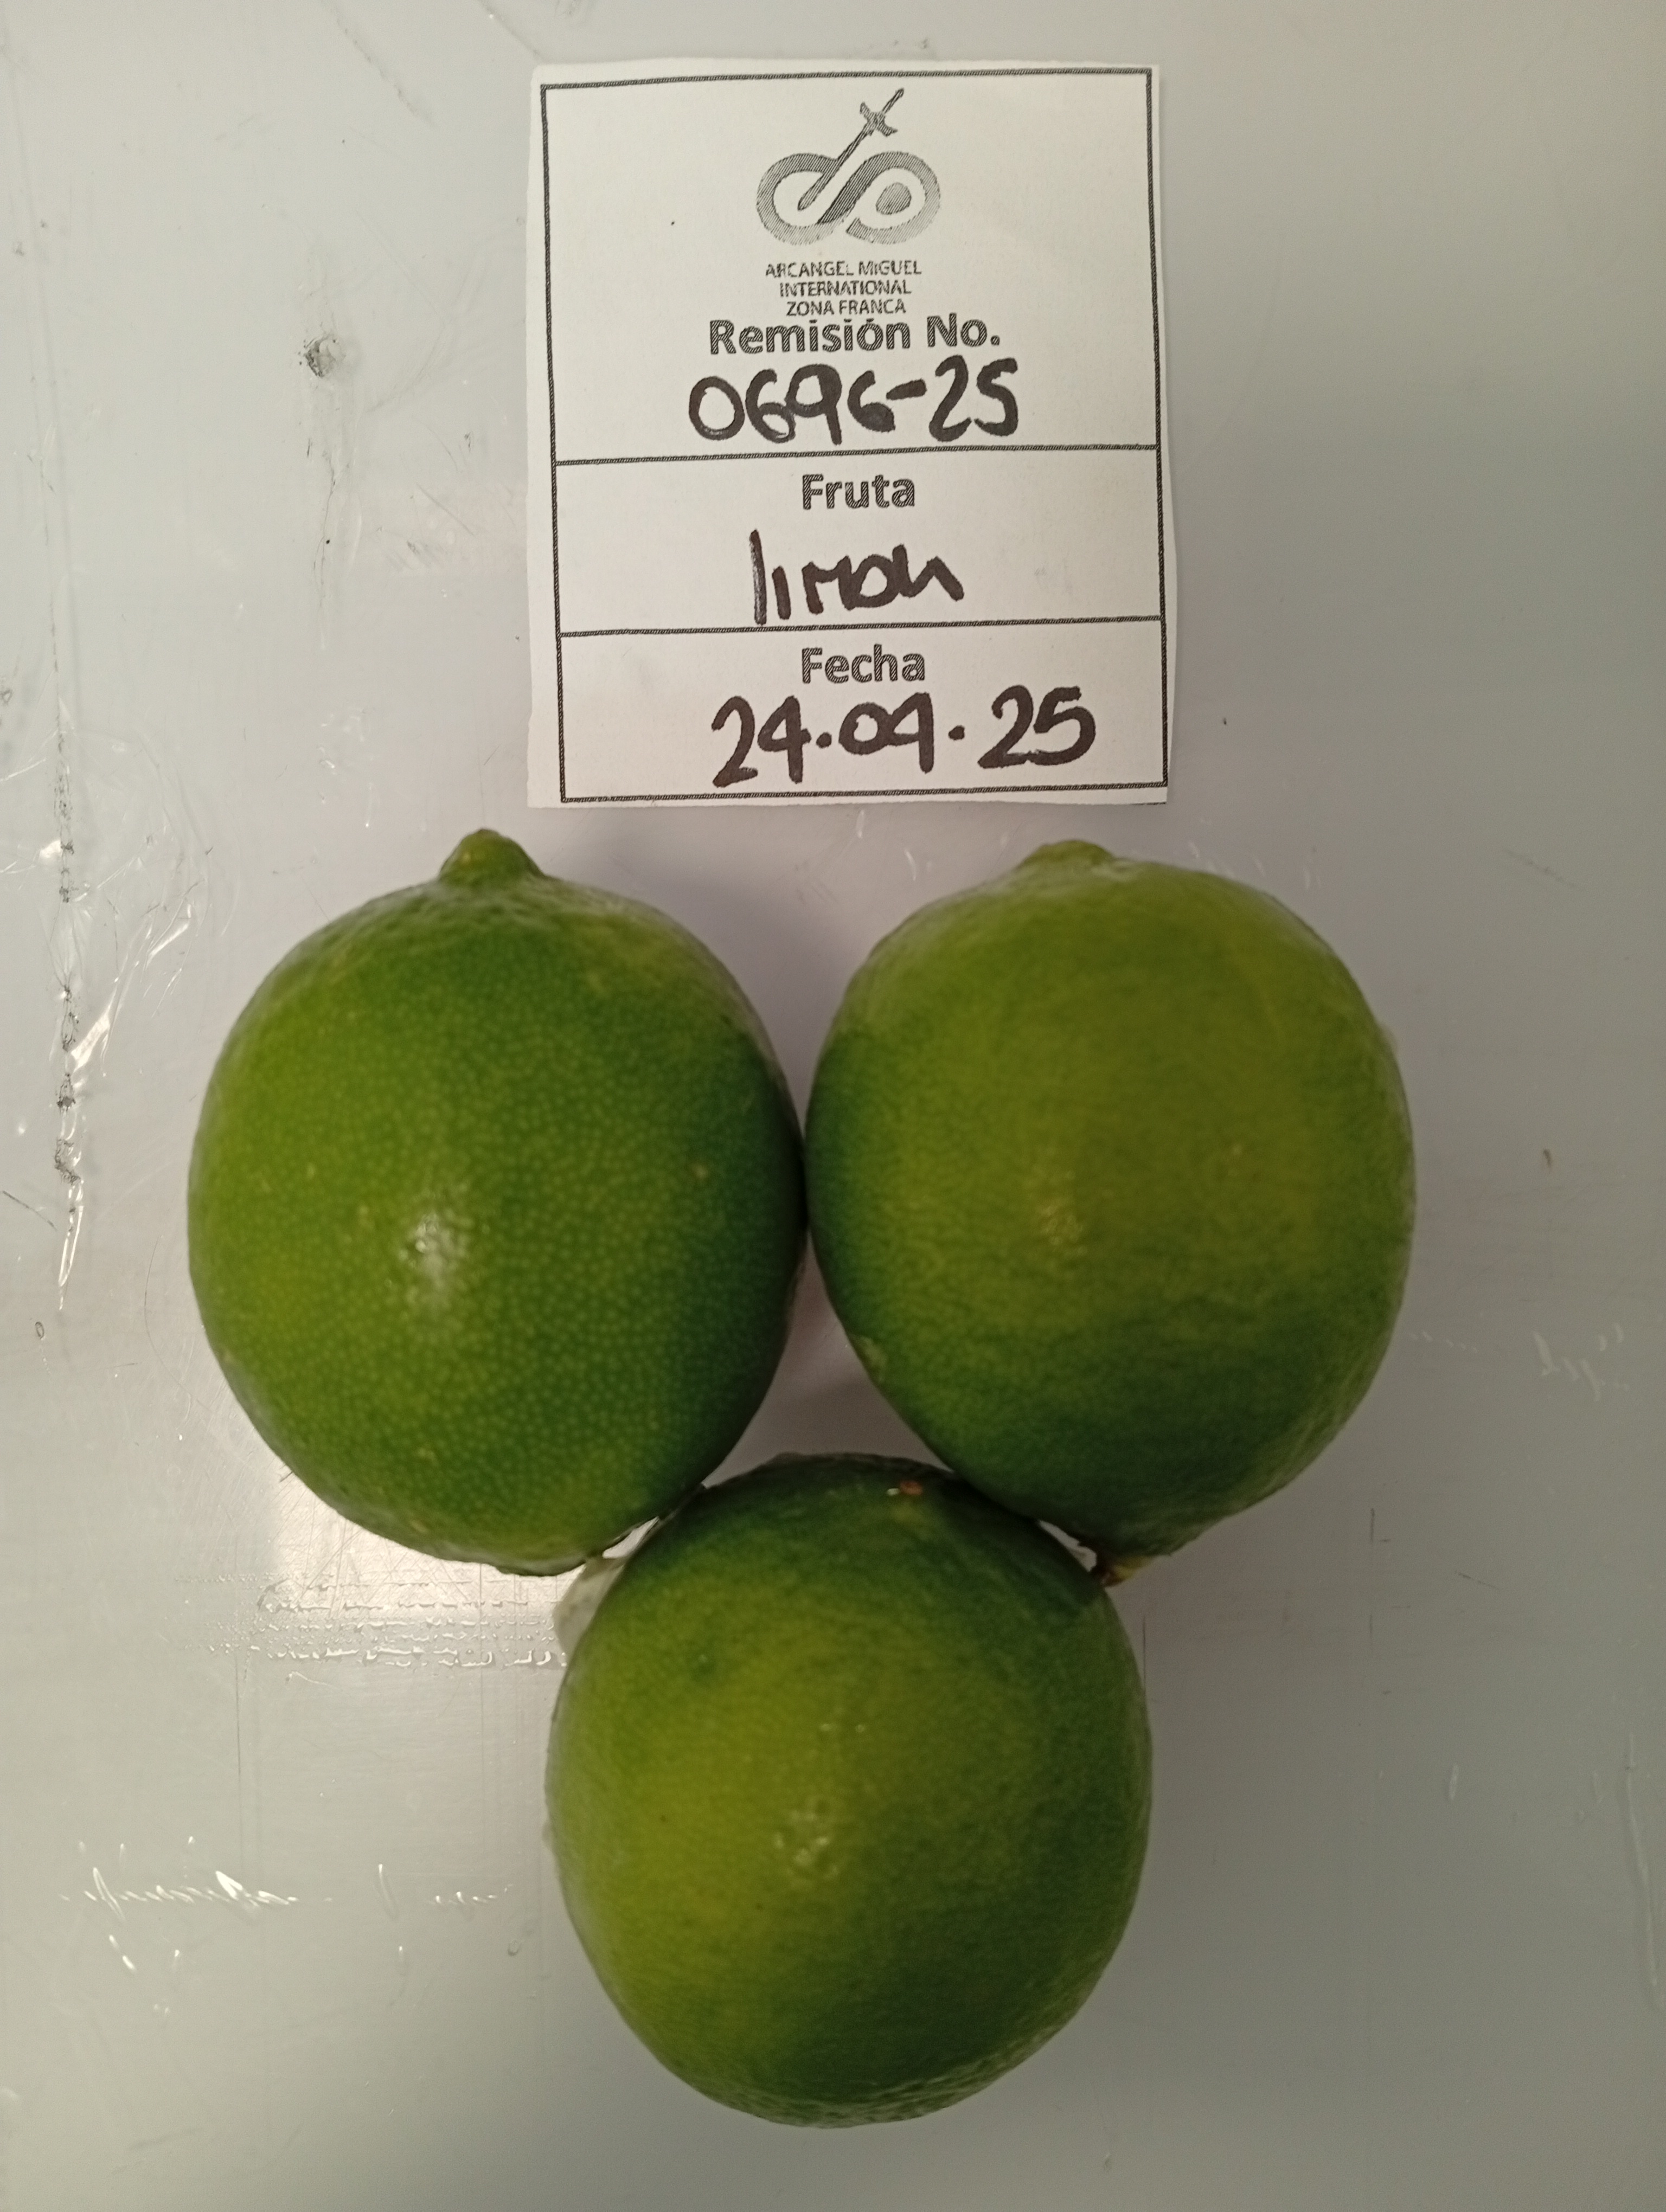 ARCANGEL MIGUEL
INTERNATIONAL
ZONA FRANCA
Remisión No.
0696-25
Fruta
limon
Fecha
24.04.25